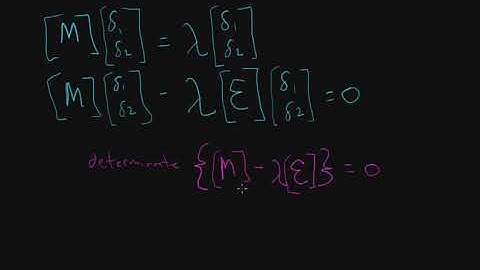 [M] [δ₁ δ₂] = λ [δ₁ δ₂]
[M] [δ₁ δ₂] - λ [Ɛ] [δ₁ δ₂] = 0
determinate {[M] - λ[Ɛ]} = 0